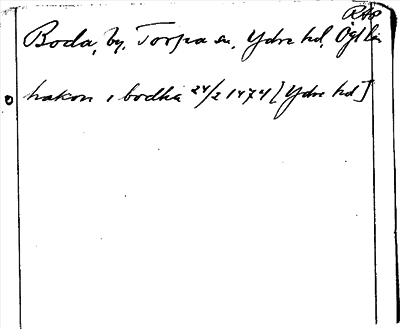 RAp
Boda, by, Torpa sn, Ydre hd, Ögl län
hakon i bodha 24/2 1474 [Ydre hd]